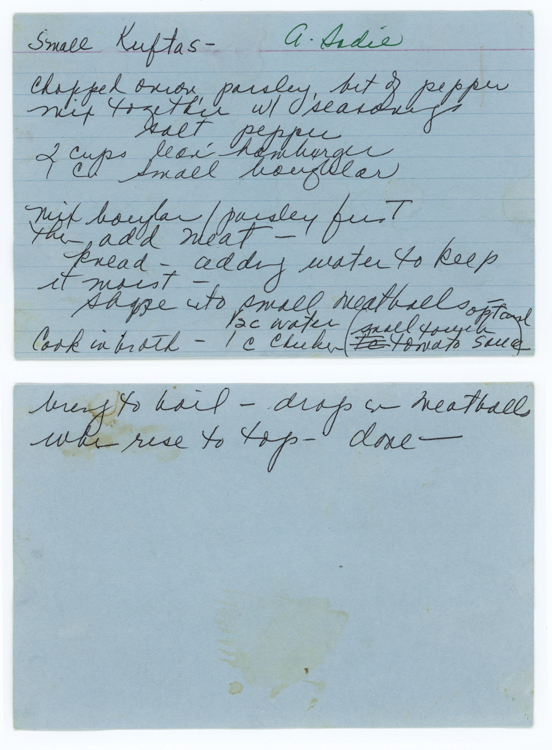 Small Kuftas- A. Sadie
chopped onion, parsley, bit of pepper
mix together w/ seasonings
salt pepper
2 cups lean hamburger
1 c small bourglar
mix bourlar/parsley first
then add meat -
knead - adding water to keep
it moist -
shape into small meatballs optional
1/2 c water (small
Cook in broth - 1 c chicken tomato sauce)
bring to boil - drop in meatballs
when rise to top - done -